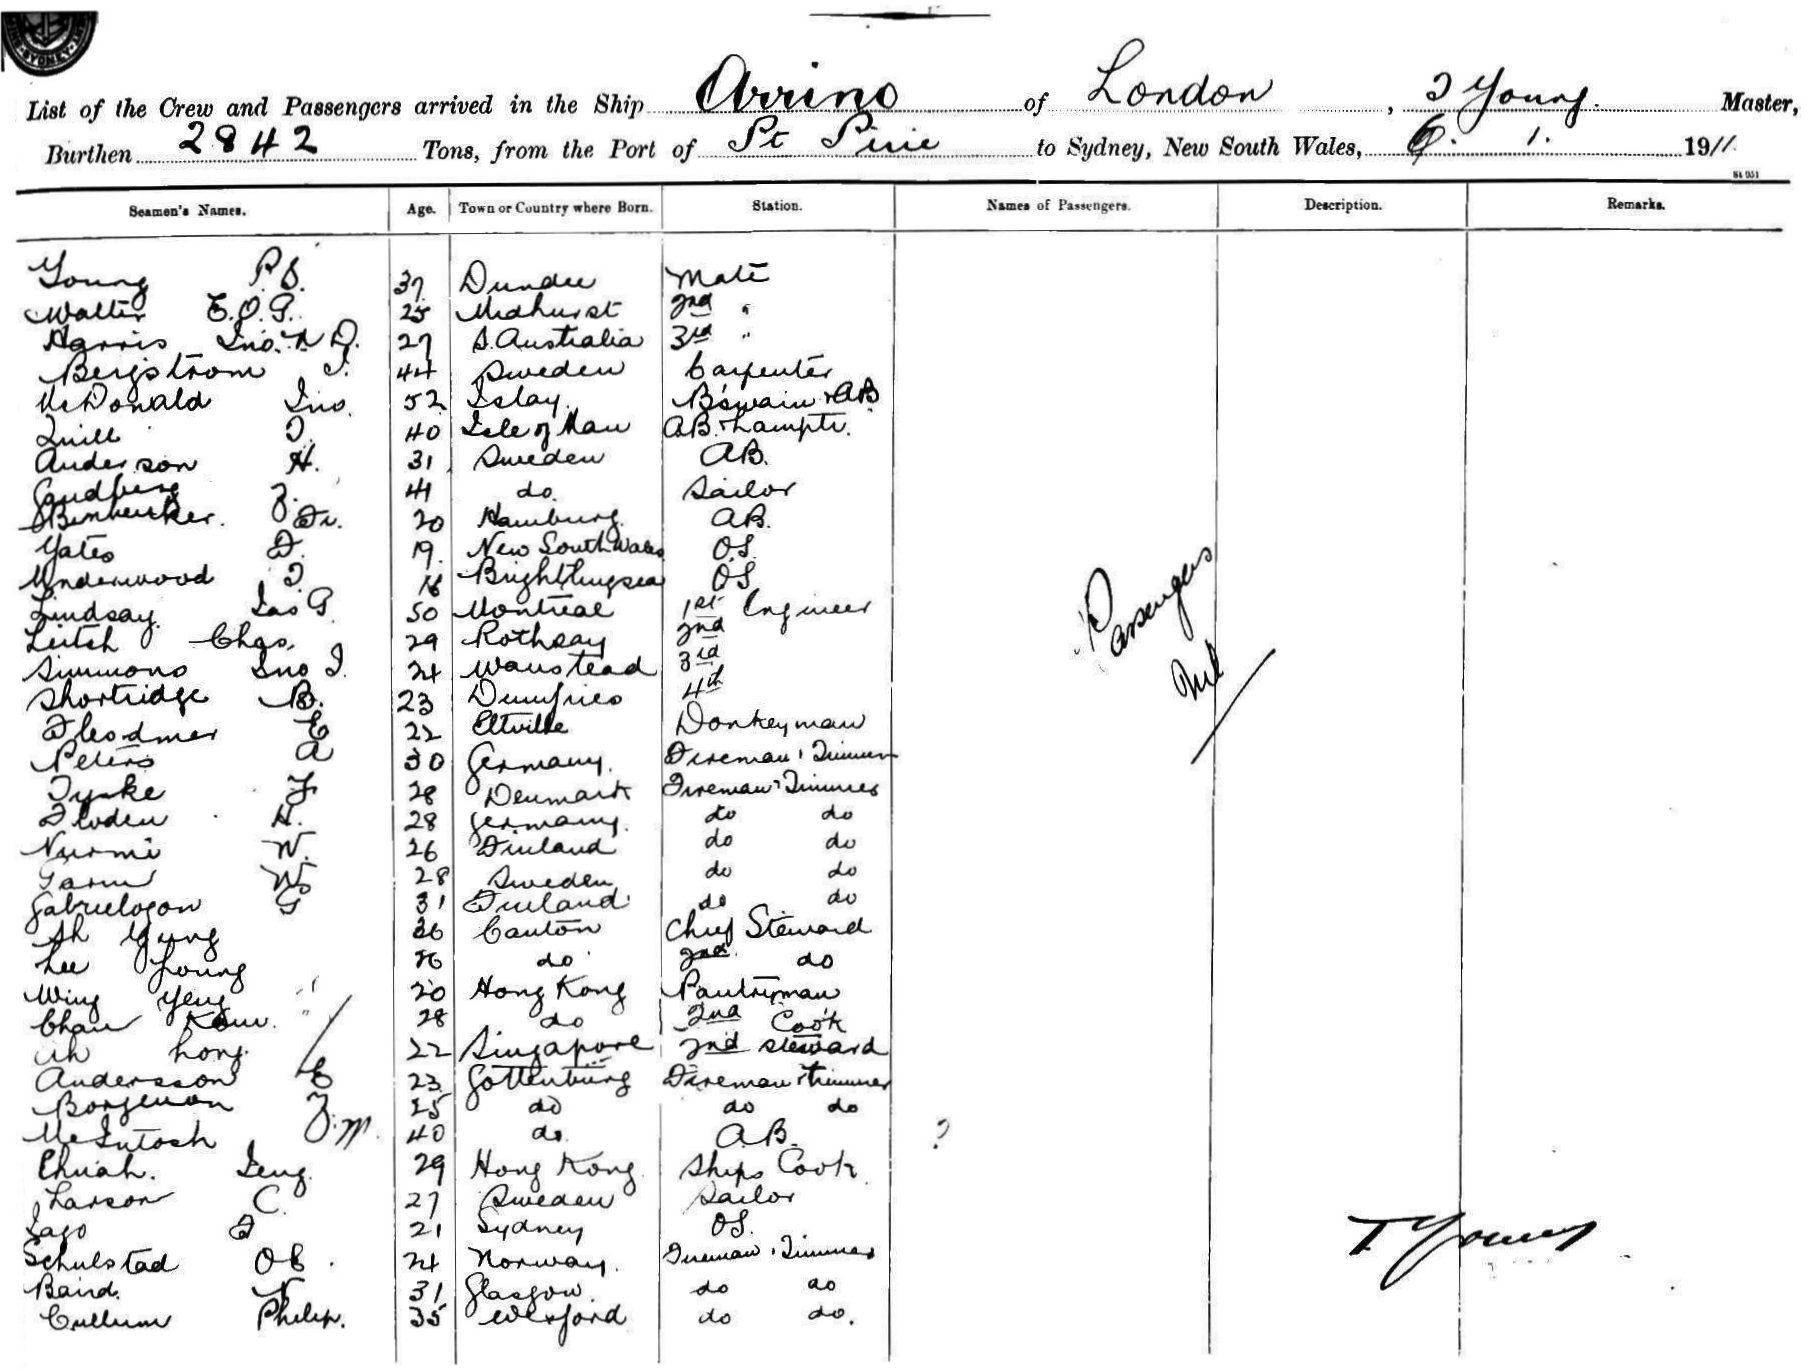 SYDNEY
List of the Crew and Passengers arrived in the Ship Arrino of London, T Young. Master,
Burthen 2842 Tons, from the Port of Pt Pirie to Sydney, New South Wales, 6. 1. 1911.
Seamen's Names. Age. Town or Country where Born. Station. Names of Passengers. Description. Remarks.
Young P.S. 37 Dundee Mate
Walter E.O.G. 25 Midhurst 2nd "
Harris Jno. N D. 27 S. Australia 3rd "
Bergstrom J. 44 Sweden Carpenter
McDonald Jno. 52 Islay Bswain & AB
Quill T. 40 Isle of Man AB. & Lamptr.
Anderson H. 31 Sweden AB.
Sandberg J. 41 do. Sailor
Fr. 20 Hamburg. AB.
Yates D. 19. New South Wales O.S.
Underwood T. 18 Brightlingsea O.S.
Lindsay. Jas G. 50 Montreal 1st Engineer
Leitch Chas. 29 Rothsay 2nd
Simmons Jno J. 24 Wanstead 3rd
Shortridge B. 23 Dumfries 4th
E 22 Eltville Donkeyman
Peters A 30 Germany. Fireman & Trimmer
Tyske F 28 Denmark Fireman & Trimmer
Floden H. 28 Germany. do do
Nurmi W. 26 Finland do do
Garm W 28 Sweden do do
Gabrielson G 31 Finland do do
Ah Yung 36 Canton Chief Steward
Lee Young 26 do 2nd do
Wing Yeng 20 Hong Kong Pantryman
Chan Kam. 28 do 2nd Cook
Ah Long. 22 Singapore 2nd Steward
Andersson E 23 Gottenburg Fireman & Trimmer
Borgenson J. 25 do do do
McIntosh J. M. 40 do. A.B. ?
Chuah. Seng. 29 Hong Kong Ships Cook
Larson C. 27 Sweden Sailor
Jago F 21 Sydney O.S.
Schulstad O C. 24 Norway. Fireman & Trimmer
Baird. N 31 Glasgow. do do
Cullum Philip. 35 Wexford do do.
Passengers
Nil
T Young